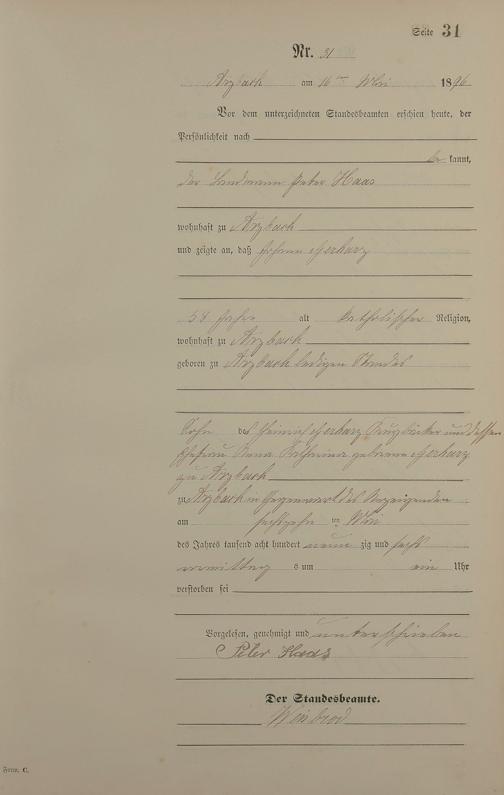 Seite 31
Nr. 31
Arzbach am 16ten Mai 1896
Vor dem unterzeichneten Standesbeamten erschien heute, der
Persönlichkeit nach
be kannt,
der Landmann Peter Haas
wohnhaft zu Arzbach
und zeigte an, daß Johann Gerharz
58 Jahre alt katholischer Religion,
wohnhaft zu Arzbach
geboren zu Arzbach ledigen Standes
Sohn des Heinrich Gerharz Krugbäcker und dessen
Ehefrau Anna Catharina geborene Gerharz
zu Arzbach
zu Arzbach in Gegenwart des Anzeigenden
am sechszehn ten Mai
des Jahres tausend acht hundert neun zig und sechs
vormittag s um ein Uhr
verstorben sei
Vorgelesen, genehmigt und unterschrieben
Peter Haas
Der Standesbeamte.
Form. C.